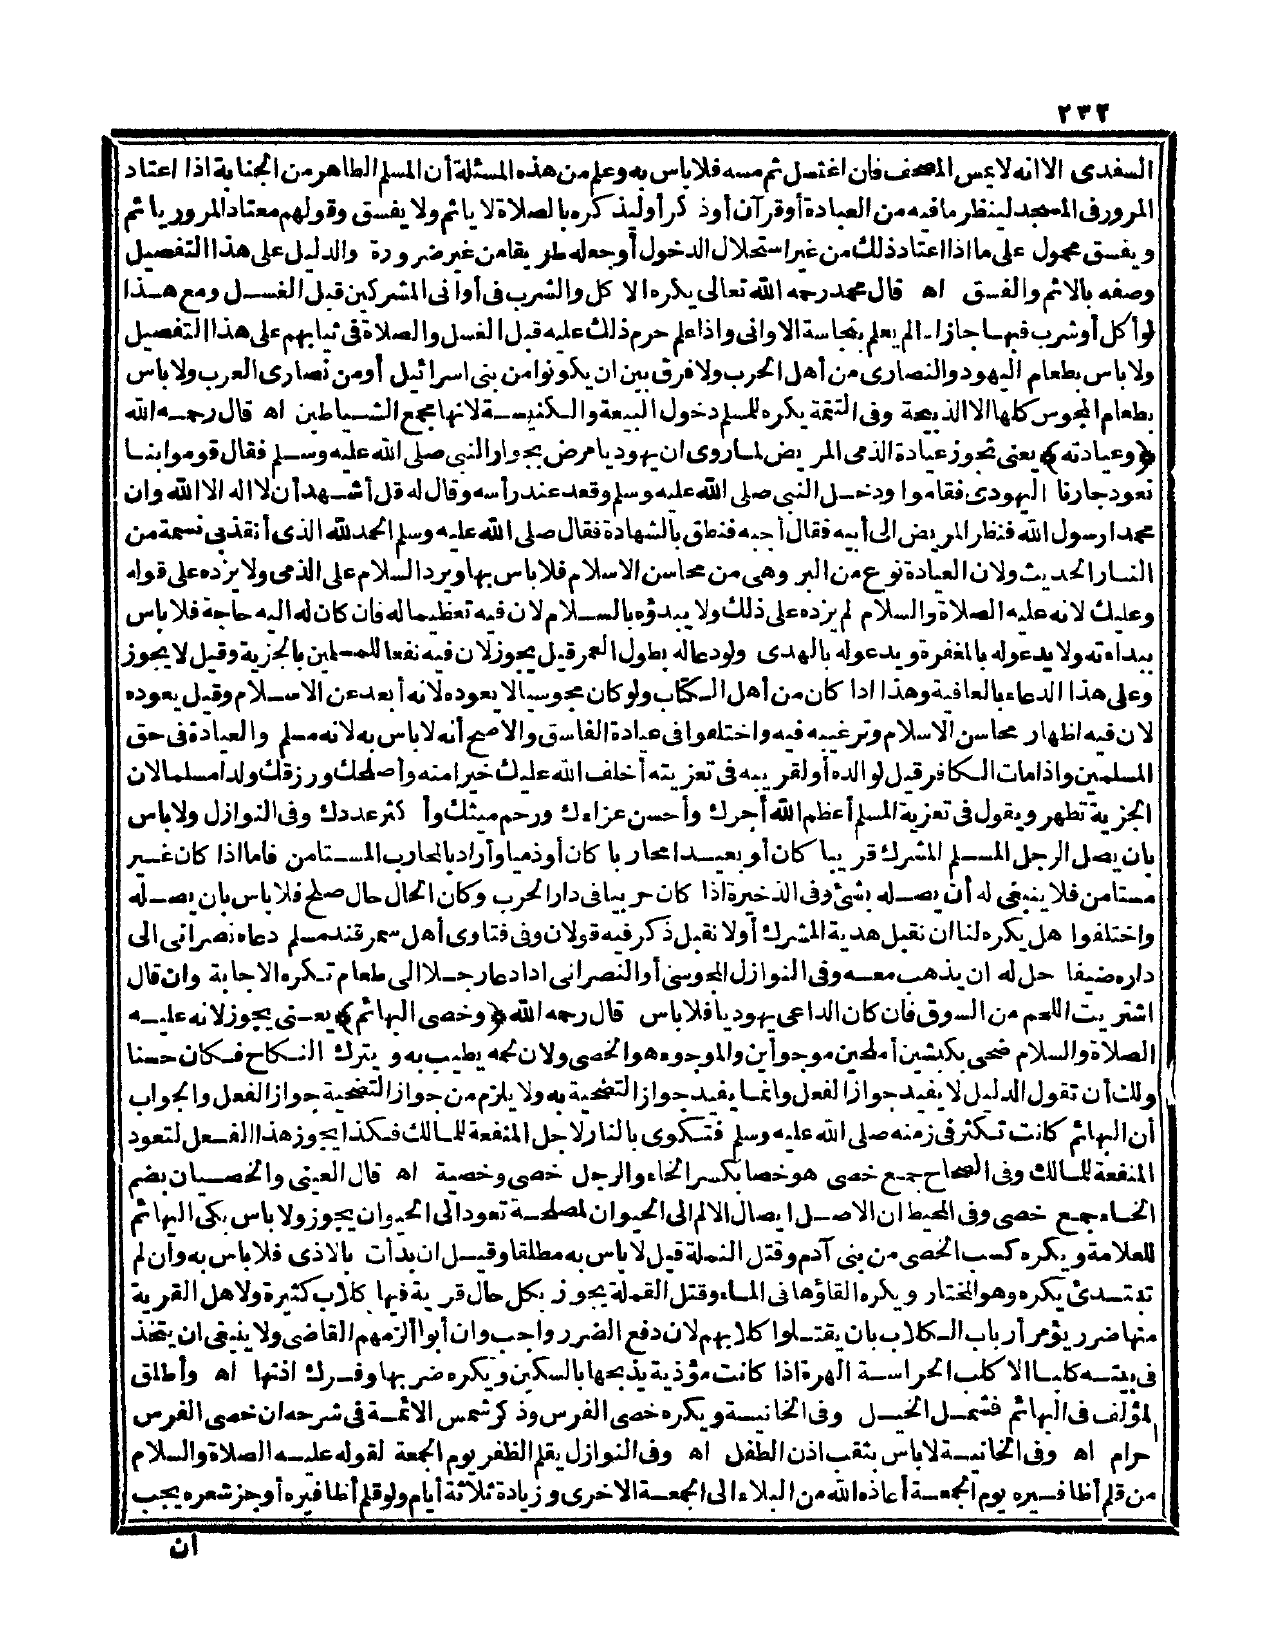 ٢٣٢
السغدى الا انه لا يمس المصحف فان اغتسل ثم مسه فلا باس به وعلم من هذه المسئلة أن المسلم الطاهر من الجنابة اذا اعتاد
المرور فى المسجد لينظر ما فيه من العبادة أو قرآن أو ذكر أو ليذكره بالصلاة لا ياثم ولا يفسق وقولهم معتاد المرور ياثم
ويفسق محمول على ما اذا اعتاد ذلك من غير استحلال الدخول أو جعله طريقا من غير ضرورة والدليل على هذا التفصيل
وصفه بالاثم والفسق اه قال محمد رحمه الله تعالى يكره الاكل والشرب فى أوانى المشركين قبل الغسل ومع هذا
لو أكل أو شرب فيها جاز اذا لم يعلم بنجاسة الاوانى واذا علم حرم ذلك عليه قبل الغسل والصلاة فى ثيابهم على هذا التفصيل
ولا باس بطعام اليهود والنصارى من أهل الحرب ولا فرق بين ان يكونوا من بنى اسرائيل أو من نصارى العرب ولا باس
بطعام المجوس كلها الا الذبيحة وفى التتمة يكره للمسلم دخول البيعة والكنيسة لانها مجمع الشياطين اه قال رحمه الله
﴿وعيادته﴾ يعنى تجوز عيادة الذمى المريض لما روى ان يهوديا مرض بجوار النبى صلى الله عليه وسلم فقال قوموا بنا
نعود جارنا اليهودى فقاموا ودخل النبى صلى الله عليه وسلم وقعد عند رأسه وقال له قل أشهد أن لا اله الا الله وان
محمدا رسول الله فنظر المريض الى أبيه فقال أجبه فنطق بالشهادة فقال صلى الله عليه وسلم الحمد لله الذى أنقذ بى نسمة من
النار الحديث ولان العيادة نوع من البر وهى من محاسن الاسلام فلا باس بها ويرد السلام على الذمى ولا يزده على قوله
وعليك لانه عليه الصلاة والسلام لم يزده على ذلك ولا يبدؤه بالسلام لان فيه تعظيما له فان كان له اليه حاجة فلا باس
ببداءته ولا يدعو له بالمغفرة ويدعو له بالهدى ولو دعا له بطول العمر قيل يجوز لان فيه نفعا للمسلمين بالجزية وقيل لا يجوز
وعلى هذا الدعاء بالعافية وهذا اذا كان من أهل الكتاب ولو كان مجوسيا لا يعوده لانه أبعد عن الاسلام وقيل يعوده
لان فيه اظهار محاسن الاسلام وترغيبه فيه واختلفوا فى عيادة الفاسق والاصح أنه لا باس به لانه مسلم والعيادة فى حق
المسلمين واذا مات الكافر قيل لوالده أو لقريبه فى تعزيته أخلف الله عليك خيرا منه وأصلحك ورزقك ولدا مسلما لان
الجزية تطهر ويقول فى تعزية المسلم أعظم الله أجرك وأحسن عزاءك ورحم ميتك وأكثر عددك وفى النوازل ولا باس
بان يصل الرجل المسلم المشرك قريبا كان أو بعيدا محاربا كان أو ذميا وأراد بالمحارب المستامن فاما اذا كان غير
مستامن فلا ينبغى له أن يصله بشئ وفى الذخيرة اذا كان حربيا فى دار الحرب وكان الحال حال صلح فلا باس بان يصله
واختلفوا هل يكره لنا ان نقبل هدية المشرك أو لا نقبل ذكر فيه قولان وفى فتاوى أهل سمرقند مسلم دعاه نصرانى الى
داره ضيفا حل له ان يذهب معه وفى النوازل المجوسى أو النصرانى اذا دعا رجلا الى طعام تكره الاجابة وان قال
اشتريت اللحم من السوق فان كان الداعى يهوديا فلا باس قال رحمه الله ﴿وخصى البهائم﴾ يعنى يجوز لانه عليه
الصلاة والسلام ضحى بكبشين أملحين موجوأين والموجوء هو الخصى ولان لحمه يطيب به ويترك النكاح فكان حسنا
ولك أن تقول الدليل لا يفيد جواز الفعل وانما يفيد جواز التضحية به ولا يلزم من جواز التضحية جواز الفعل والجواب
أن البهائم كانت تكثر فى زمنه صلى الله عليه وسلم فتكوى بالنار لاجل المنفعة للمالك فكذا يجوز هذا الفعل لتعود
المنفعة للمالك وفى الصحاح جمع خصى هو خصا بكسر الخاء والرجل خصى وخصية اه قال العينى والخصيان بضم
الخاء جمع خصى وفى المحيط ان الاصل ايصال الالم الى الحيوان لمصلحة تعود الى الحيوان يجوز ولا باس بكى البهائم
للعلامة ويكره كسب الخصى من بنى آدم وقتل النملة قيل لا باس به مطلقا وقيل ان بدأت بالاذى فلا باس به وان لم
تبتدئ يكره وهو المختار ويكره القاؤها فى الماء وقتل القملة يجوز بكل حال قرية فيها كلاب كثيرة ولاهل القرية
منها ضرر يؤمر أرباب الكلاب بان يقتلوا كلابهم لان دفع الضرر واجب وان أبوا ألزمهم القاضى ولا ينبغى ان يتخذ
فى بيته كلبا الا كلب الحراسة الهرة اذا كانت مؤذية يذبحها بالسكين ويكره ضربها وفرك اذنها اه وأطلق
المؤلف فى البهائم فشمل الخيل وفى الخانية ويكره خصى الفرس وذكر شمس الائمة فى شرحه ان خصى الفرس
حرام اه وفى الخانية لا باس بثقب اذن الطفل اه وفى النوازل يقلم الظفر يوم الجمعة لقوله عليه الصلاة والسلام
من قلم أظافيره يوم الجمعة أعاذه الله من البلاء الى الجمعة الاخرى وزيادة ثلاثة أيام ولو قلم أظافيره أو جز شعره يجب
ان